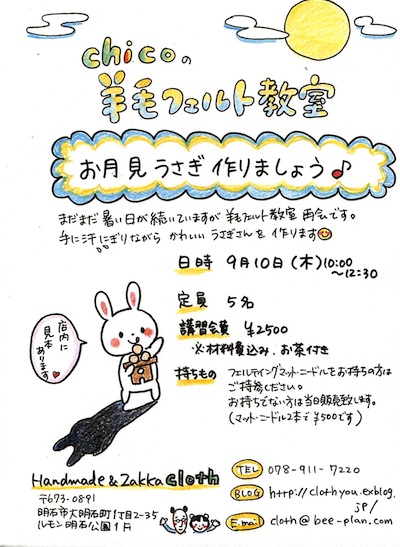 chicoの
羊毛フェルト教室
お月見うさぎ作りましょう♪
まだまだ暑い日が続いていますが羊毛フェルト教室再会です。
手に汗にぎりながら かわいい うさぎさんを 作ります
日時 9月10日(木)10:00
〜12:30
定員 5名
講習会費 ¥2500
※材料費込み.お茶付き
持ちもの フェルティングマット・ニードルをお持ちの方は
ご持参ください。
お持ちでない方は当日販売致します。
(マット・ニードル2本で¥500です)
店内に
見本
あります
Handmade & Zakka cloth
〒673-0891
明石市大明石町1丁目2-35
ルモン明石公園1F
TEL 078-911-7220
BLOG http://clothyou.exblog.
jp/
E.mail cloth@bee-plan.com